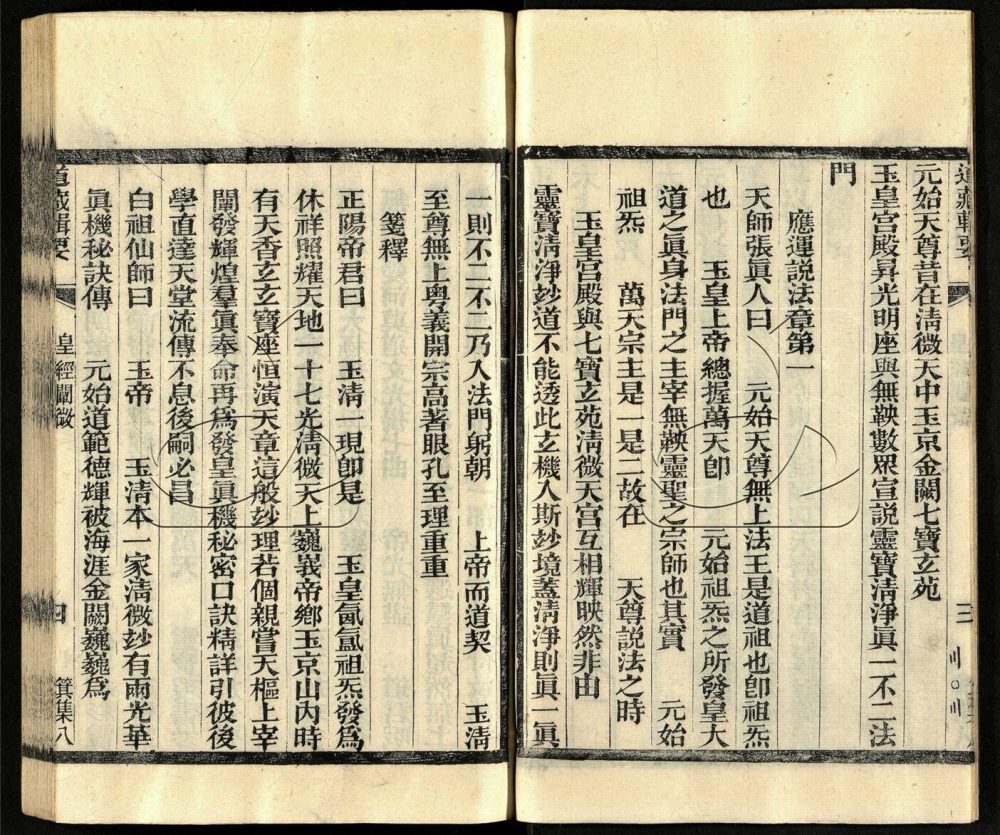 元始天尊昔在淸微天中玉京金闕七寶玄苑
玉皇宮殿昇光明座與無鞅數眾宣説靈寶淸淨眞一不二法
門
應運説法章第一
天師張眞人曰　元始天尊無上法王是道祖也卽祖炁
也　玉皇上帝總握萬天卽　元始祖炁之所發皇大
道之眞身法門之主宰無鞅靈聖之宗師也其實　元始
祖炁　萬天宗主是一是二故在　天尊説法之時
玉皇宮殿與七寶玄苑淸微天宮互相輝映然非由
靈寶淸淨玅道不能透此玄機入斯玅境蓋淸淨則眞一眞
道藏輯要
三
一則不二不二乃入法門躬朝　上帝而道契　玉淸
至尊無上粤義開宗高著眼孔至理重重
箋釋
正陽帝君曰　玉淸一現卽是　玉皇氤氳祖炁發爲
休祥照耀天地一十七光淸微天上巍峩帝鄉玉京山內時
有天香玄玄寶座恒演天章這般玅理若個親嘗天樞上宰
闡發輝煌羣眞奉命再爲發皇眞機秘密口訣精詳引彼後
學直達天堂流傳不息後嗣必昌
白祖仙師曰　玉帝　玉淸本一家淸微玅有兩光華
眞機秘訣傳　元始道範德輝被海涯金闕巍巍爲
道藏輯要　皇經闡微　四　箕集八